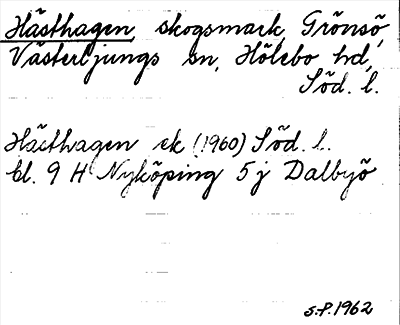 Hästhagen, skogsmark, Grönsö,
Västerljungs sn, Hölebo hd,
Söd. l.
Hästhagen ek (1960) Söd. l.
bl. 9 H Nyköping 5 j Dalbyö
S.P. 1962